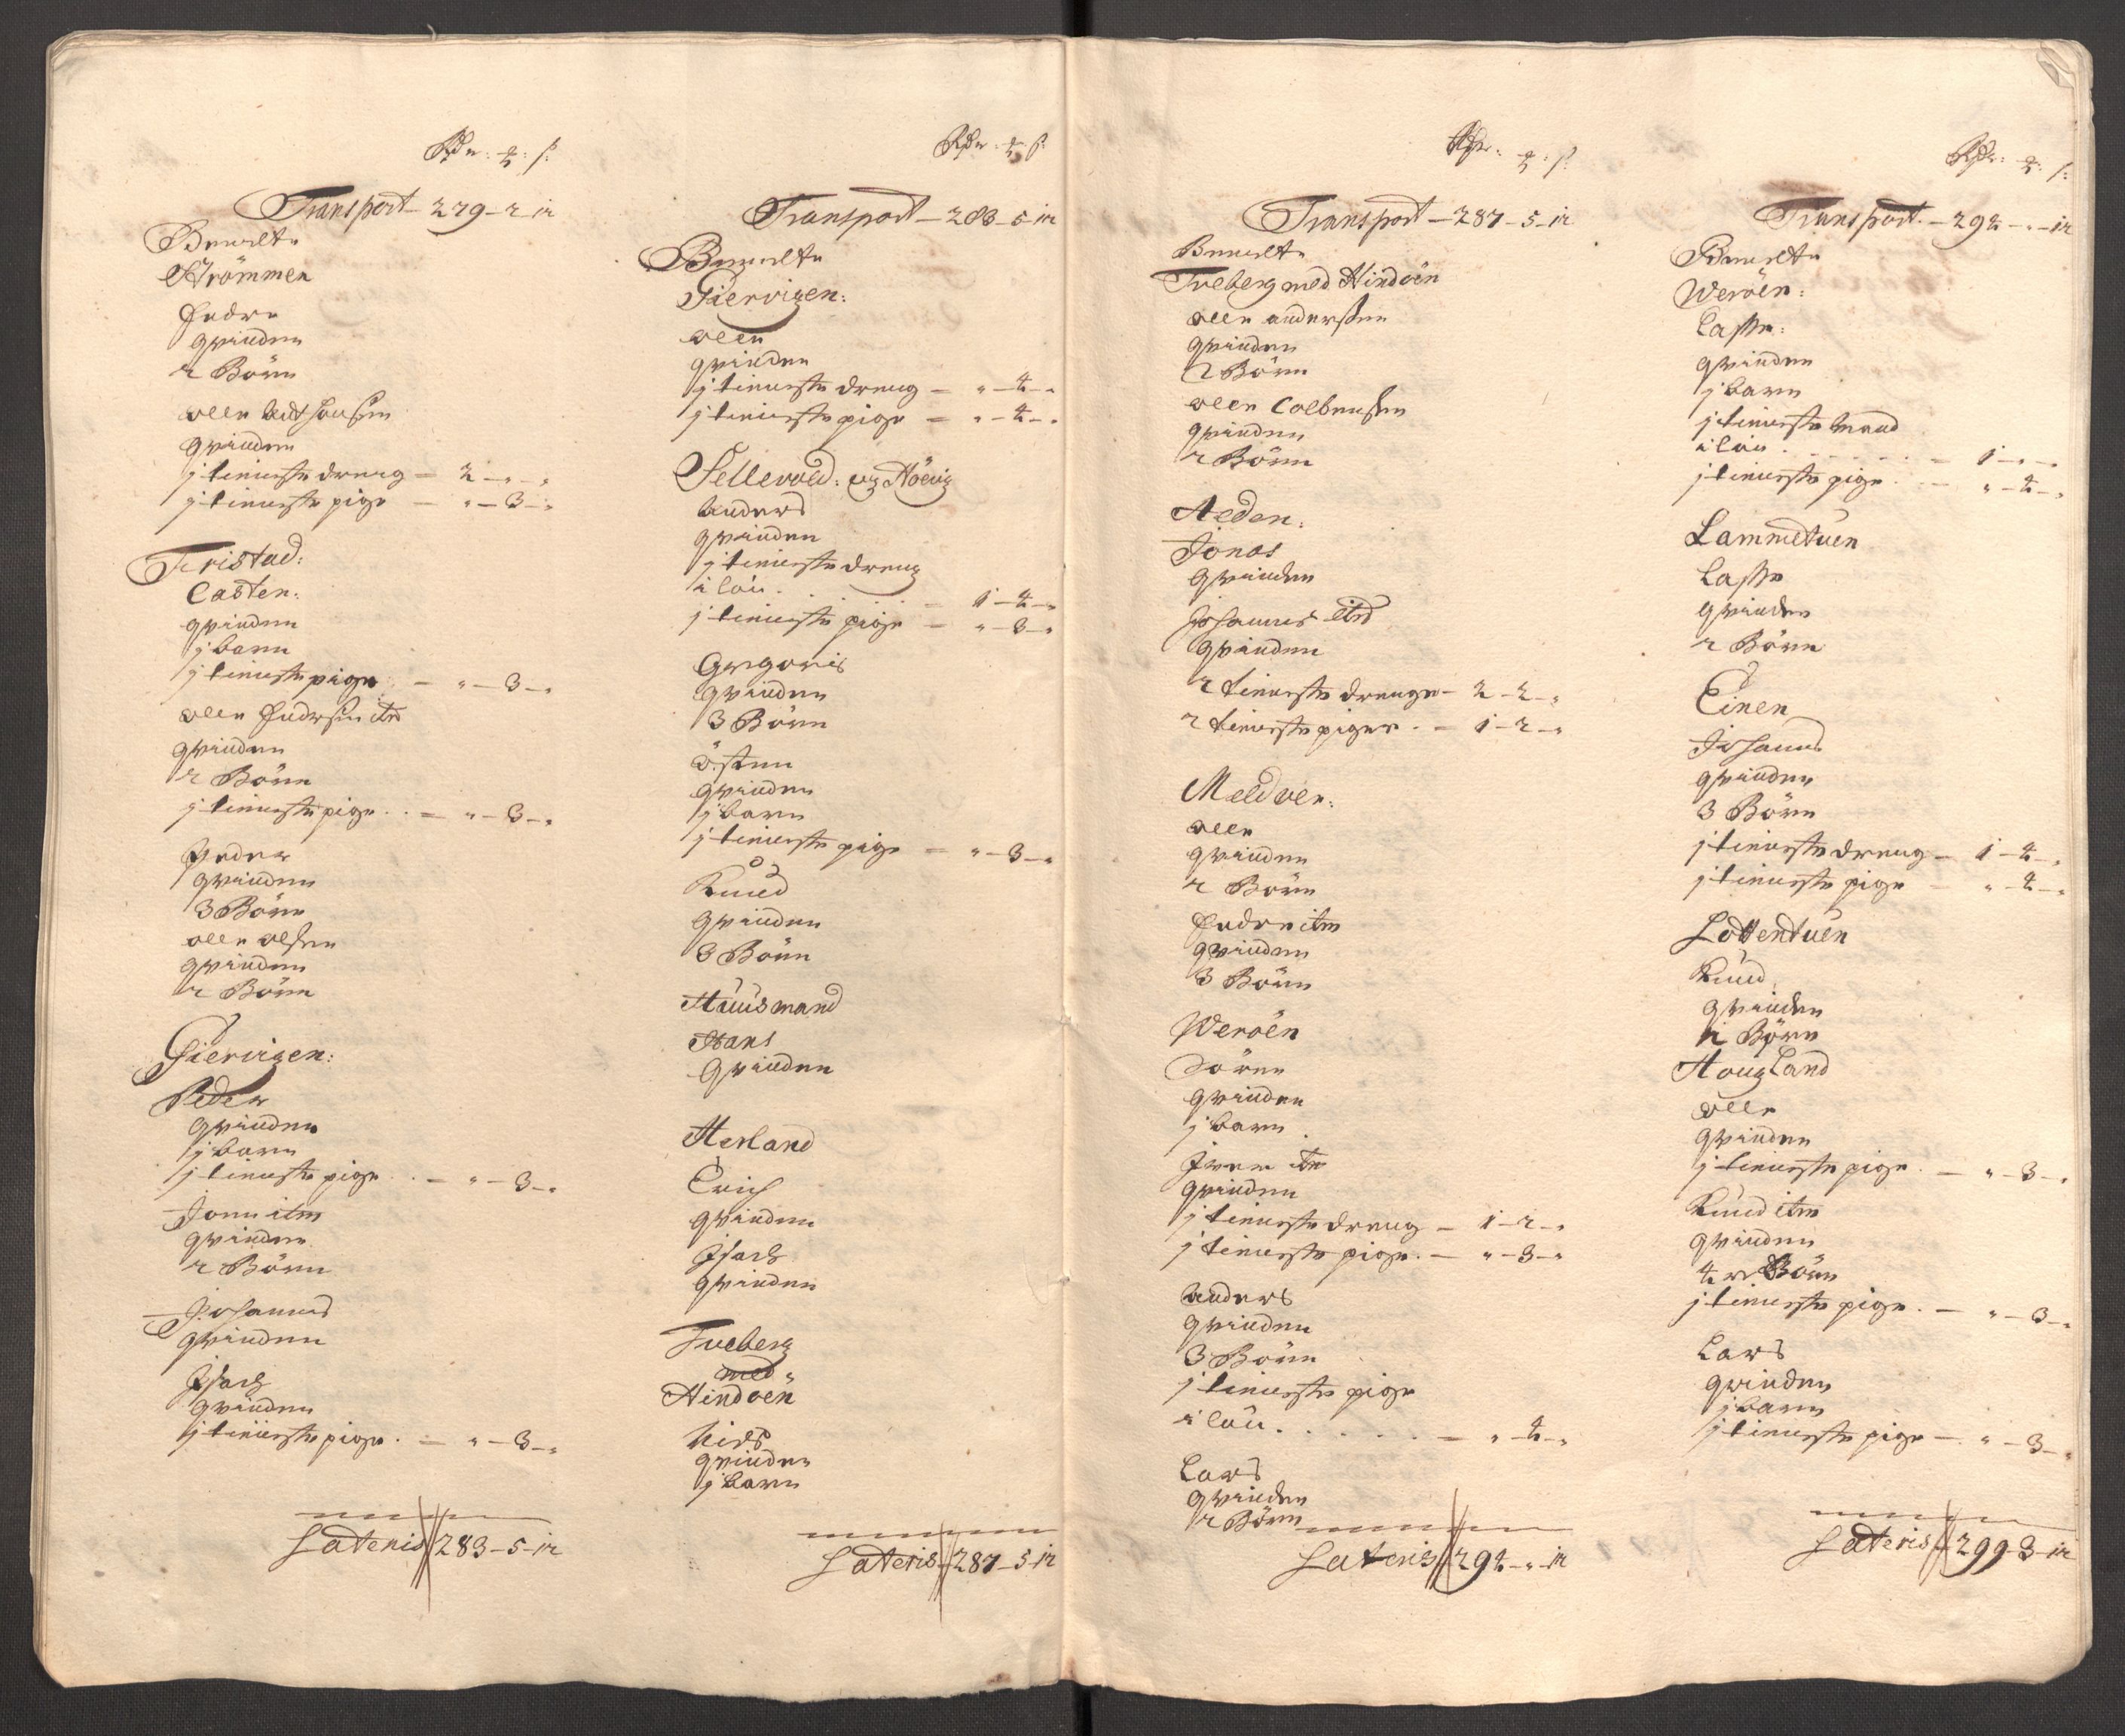 Rdr: ꝝ: s:
Transport - 279 - 2 - 12
Bemelte
Strömmen
Endre
qvinden
2 Börn
Olle
qvinden
j tieneste dreng - 2 - " - "
j tieneste pige - " - 3 - "
Tiristad:
Casten:
qvinden
j barn
j tieneste pige - " - 3 - "
Olle Endresen itm
qvinden
2 Börn
j tieneste pige - " - 3 - "
Peder
qvinden
3 Börn
Olle Olsen
qvinden
2 Börn
Giervigen:
Peder
qvinden
j barn
j tieneste pige - " - 3 - "
Jonn itm
qvinden
2 Börn
Johannes
qvinden
Isach
qvinden
j tieneste pige - " - 3 - "
Lateris 283 - 5 - 12
Rdr: ꝝ: s:
Transport - 283 - 5 - 12
Bemelte
Giervigen:
Olle
qvinden
j tieneste dreng - " - 4 - "
j tieneste pige - " - 4 - "
Sellevold: og Höevig
Anders
qvinden
j tieneste dreng
i lön - 1 - 4 - "
j tieneste pige - " - 3 - "
Gregoris
qvinden
3 Börn
Östen
qvinden
j barn
j tieneste pige - " - 3 - "
Knud
qvinden
3 Börn
Huusmand
Hans
qvinden
Herland
Erich
qvinden
Isach
qvinden
Tveberg
med
Hindöen
Niels
qvinden
j barn
Lateris 287 - 5 - 12
Rdr: ꝝ: s:
Transport - 287 - 5 - 12
Bemelte
Tveberg med Hindöen
Olle Andersen
qvinden
2 Börn
Olle Colbensen
qvinden
2 Börn
Aeden:
Jonas
qvinden
Johannes itm
qvinden
2 tieneste drenge - 2 - 2 - "
2 tieneste piger - 1 - 2 - "
Meldoen:
Olle
qvinden
2 Börn
Endre itm
qvinden
3 Börn
Weröen
Sören
qvinden
j barn
Iver itm
qvinden
j tieneste dreng - 1 - 2 - "
j tieneste pige - " - 3 - "
Anders
qvinden
3 Börn
j tieneste pige
i lön - " - 4 - "
Lars
qvinden
2 Börn
Lateris 294 - " - 12
Rdr: ꝝ: s:
Transport - 294 - " - 12
Bemelte
Weröen:
Lasse:
qvinden
j barn
j tieneste mand
i lön - 1 - " - "
j tieneste pige - " - 4 - "
Lammetuen
Lasse
qvinden
2 Börn
Einen
Johannes
qvinden
3 Börn
j tieneste dreng - 1 - 4 - "
j tieneste pige - " - 4 - "
Lottentuen
Knud
qvinden
2 Börn
Hougland
Olle
qvinden
j tieneste pige - " - 3 - "
Knud itm
qvinden
4 Börn
j tieneste pige - " - 3 - "
Lars
qvinden
j barn
j tieneste pige - " - 3 - "
Lateris 299 - 3 - 12